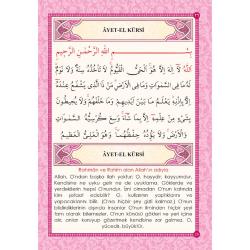 ÂYET-EL KÜRSİ
بِسْمِ اللَّهِ الرَّحْمَٰنِ الرَّحِيمِ
اَللّٰهُ لَٓا اِلٰهَ اِلَّا هُوَ اَلْحَيُّ الْقَيُّومُ لَا تَأْخُذُهُ سِنَةٌ وَلَا نَوْمٌ
لَهُ مَا فِى السَّمٰوَاتِ وَمَا فِى الْاَرْضِ مَنْ ذَا الَّذِى يَشْفَعُ عِنْدَهُ
اِلَّا بِاِذْنِهِ يَعْلَمُ مَا بَيْنَ اَيْدِيهِمْ وَمَا خَلْفَهُمْ وَلَا يُحِيطُونَ
بِشَىْءٍ مِنْ عِلْمِهِ اِلَّا بِمَا شَٓاءَ وَسِعَ كُرْسِيُّهُ السَّمٰوَاتِ
وَالْاَرْضَ وَلَا يَؤُدُهُ حِفْظُهُمَا وَهُوَ الْعَلِىُّ الْعَظِيمُ
ÂYET-EL KÜRSİ
Rahmân ve Rahîm olan Allah'ın adıyla
Allah, O'ndan başka ilah yoktur; O, hayydir, kayyumdur.
Kendisine ne uyku gelir ne de uyuklama. Göklerde ve
yerdekilerin hepsi O'nundur. İzni olmadan O'nun katında
kim şefaat edebilir? O, kullarının yaptıklarını ve
yapacaklarını bilir. (O'na hiçbir şey gizli kalmaz.) O'nun
bildirdiklerinin dışında insanlar O'nun ilminden hiçbir şeyi
tam olarak bilemezler. O'nun kürsüsü gökleri ve yeri içine
alır, onları koruyup gözetmek kendisine zor gelmez. O,
yücedir, büyüktür.